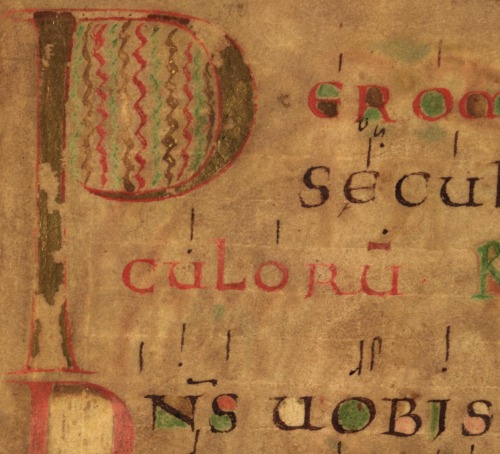 PER OM
SECUL
CULORŪ R
DN̄S UOBIS